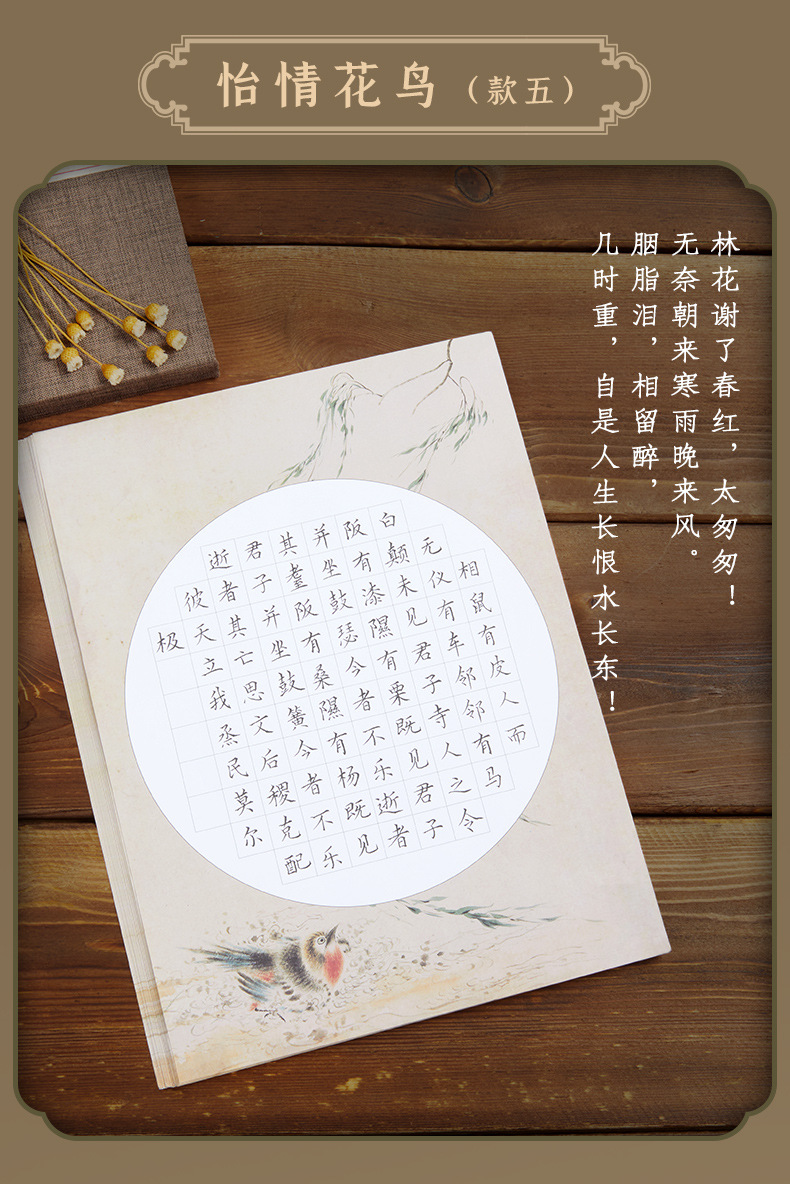 怡情花鸟（款五）
林花谢了春红，太匆匆！
无奈朝来寒雨晚来风。
胭脂泪，相留醉，
几时重，自是人生长恨水长东！
相鼠有皮人而
无仪有车邻邻有马
白颠未见君子寺人之令
阪有漆隰有栗既见君子
并坐鼓瑟今者不乐逝者
其耋阪有桑隰有杨既见
君子并坐鼓簧今者不乐
逝者其亡思文后稷克配
彼天立我烝民莫尔
极